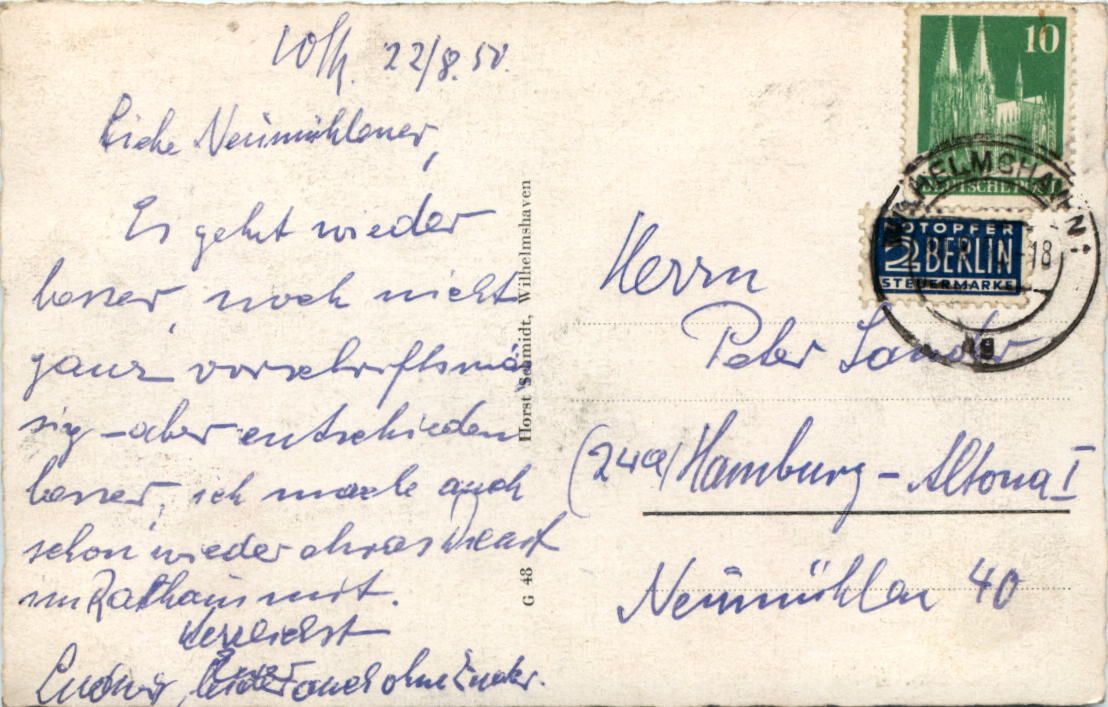 W'h. 22/8.50.
Liebe Neumühlener,
Es geht wieder
besser, noch nicht
ganz vorschriftsmäs
sig – aber entschieden
besser, ich mache auch
schon wieder etwas Dienst
im Rathaus mit.
Herzlichst
Ludwig, leider auch ohne
G 48 Horst Schmidt, Wilhelmshaven
10
DEUTSCHE POST
WILHELMSHAVEN 1
NOTOPFER
2 BERLIN
STEUERMARKE
-18
Herrn
Peter Sander
(24a) Hamburg - Altona I
Neumühlen 40